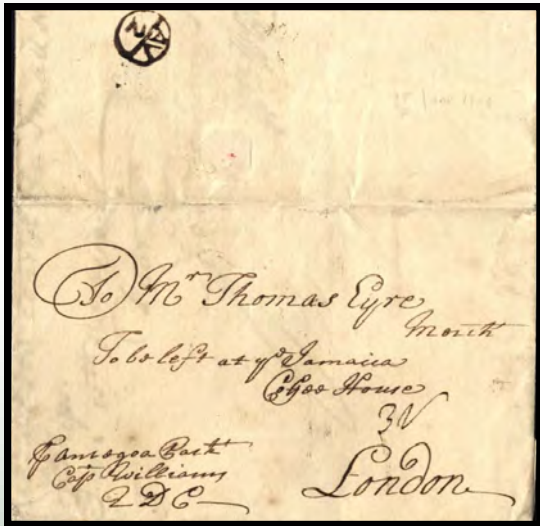 To Mr Thomas Eyre
Mercht
To be left at ye Jamaica
Coffee House
London
Antegoa Packt
Capt Williams
Q D C